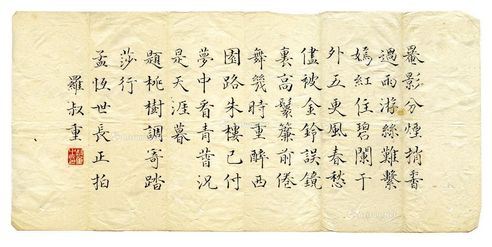 影分煙
過雨游絲難繫
嫣紅任碧闌干
外五更風春愁
儘被金鈴誤鏡
裏高鬟簾前倦
舞幾時重醉西
園路朱樓已付
夢中看青况
是天涯暮
題桃樹調寄踏
莎行
孟恆世長正拍
羅叔重